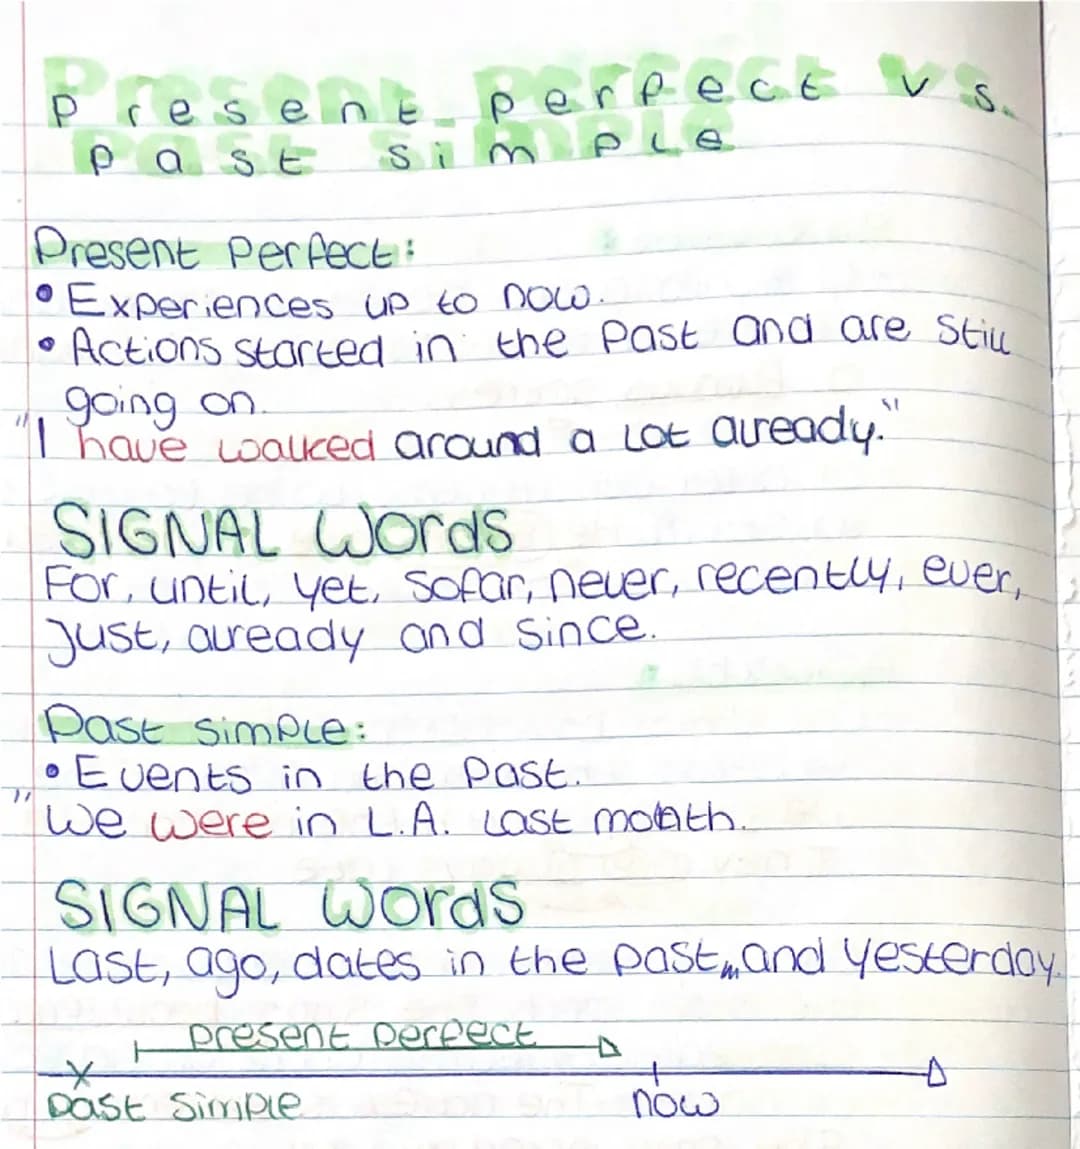 Present perfect vs.
past simple
Present Perfect:
• Experiences up to now.
• Actions started in the past and are still
going on.
"I have walked around a lot already."
SIGNAL Words
For, until, yet, sofar, never, recently, ever,
just, already and since.
Past simple:
• Events in the past.
"We were in L.A. last month.
SIGNAL Words
Last, ago, dates in the past, and yesterday.
present perfect
x
past simple
now